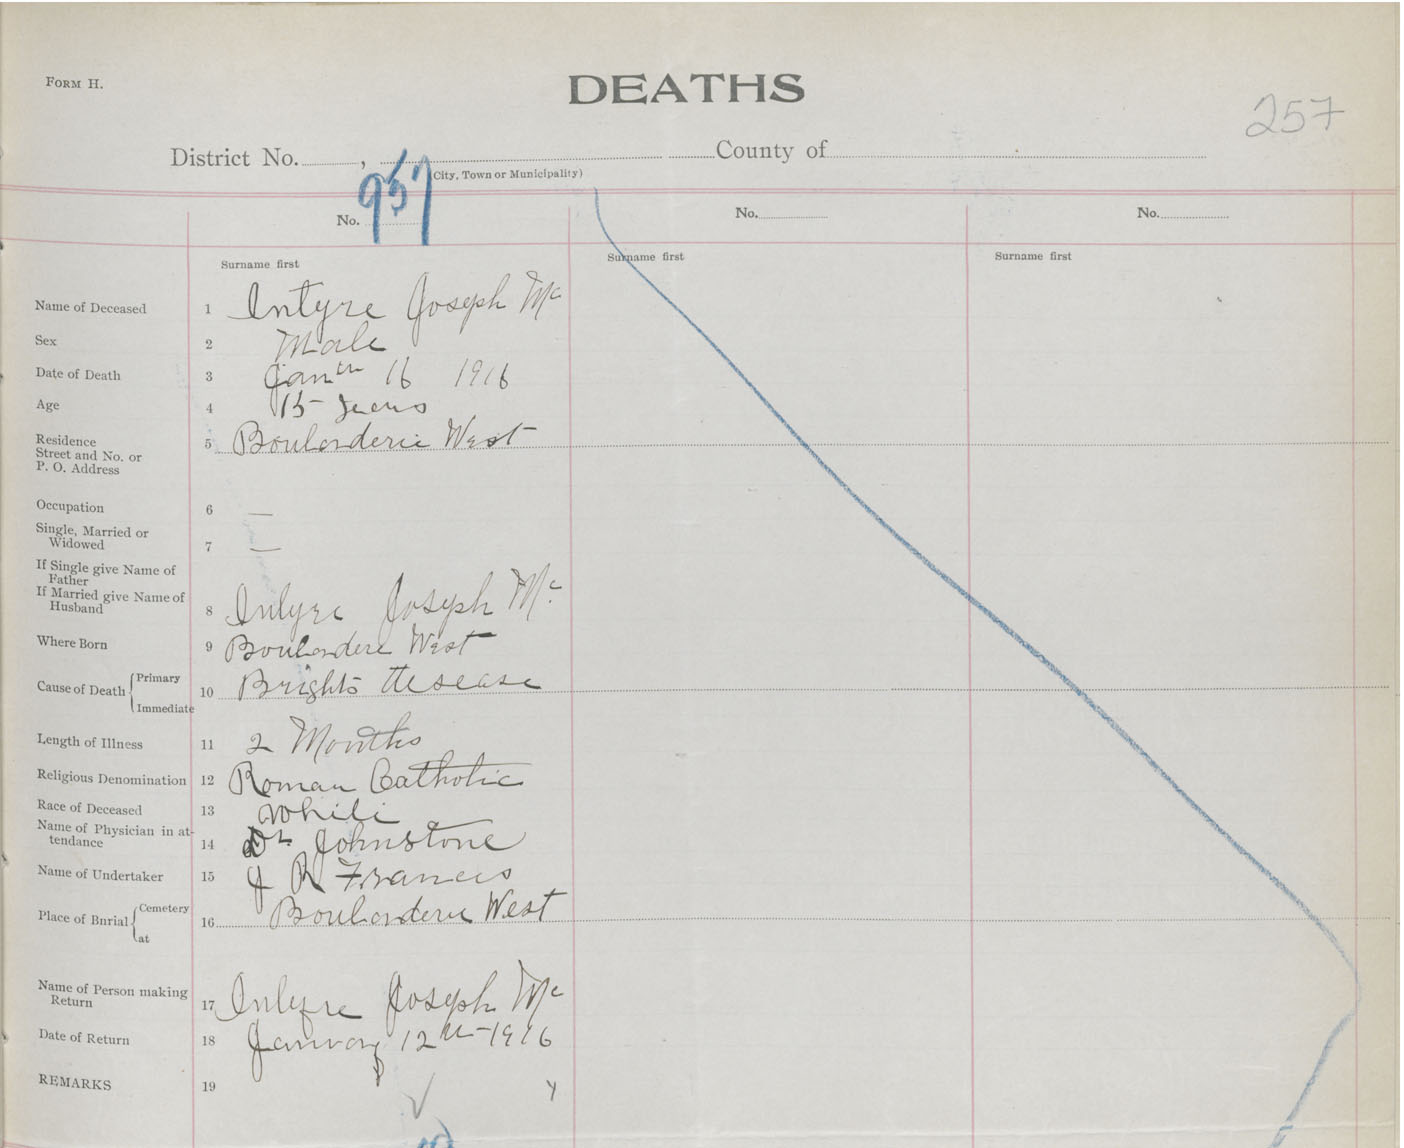 FORM H.
DEATHS
257
District No. , County of
(City, Town or Municipality)
No. 957 No. No.
Surname first Surname first Surname first
Name of Deceased 1 Intyre Joseph Mc
Sex 2 Male
Date of Death 3 Jan th 16 1916
Age 4 15 years
Residence
Street and No. or
P. O. Address
5 Boulorderie West
Occupation 6 —
Single, Married or
Widowed 7 —
If Single give Name of
Father
If Married give Name of
Husband 8 Intyre Joseph Mc
Where Born 9 Boulordere West
Cause of Death { Primary
Immediate
10 Brights desease
Length of Illness 11 2 Months
Religious Denomination 12 Roman Catholic
Race of Deceased 13 White
Name of Physician in at-
tendance 14 Dr Johnstone
Name of Undertaker 15 J R Francis
Place of Burial { Cemetery
at
16 Boulorderie West
Name of Person making
Return 17 Intyre Joseph Mc
Date of Return 18 January 12th - 1916
REMARKS 19